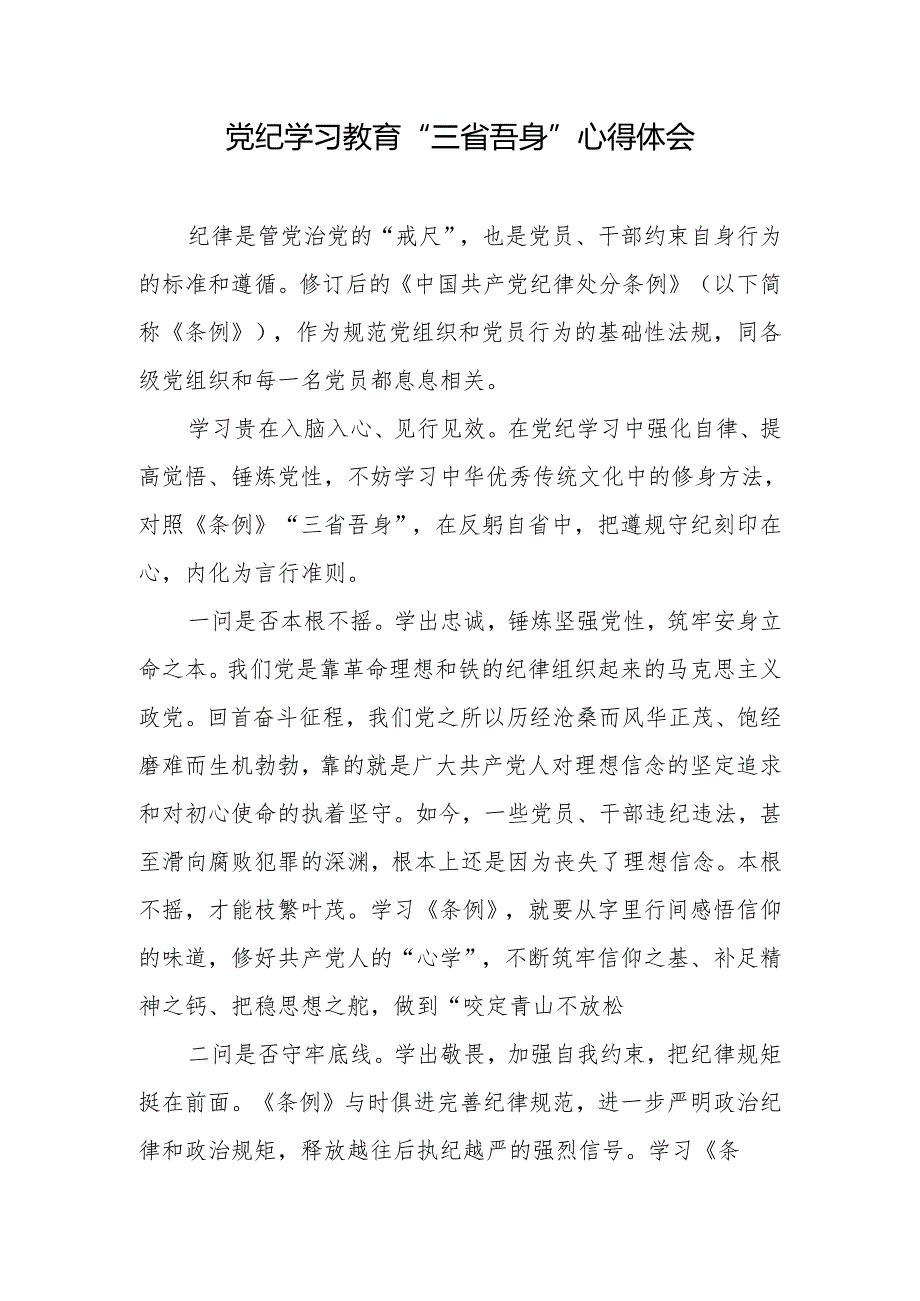 党纪学习教育“三省吾身”心得体会
纪律是管党治党的“戒尺”，也是党员、干部约束自身行为
的标准和遵循。修订后的《中国共产党纪律处分条例》（以下简
称《条例》），作为规范党组织和党员行为的基础性法规，同各
级党组织和每一名党员都息息相关。
学习贵在入脑入心、见行见效。在党纪学习中强化自律、提
高觉悟、锤炼党性，不妨学习中华优秀传统文化中的修身方法，
对照《条例》“三省吾身”，在反躬自省中，把遵规守纪刻印在
心，内化为言行准则。
一问是否本根不摇。学出忠诚，锤炼坚强党性，筑牢安身立
命之本。我们党是靠革命理想和铁的纪律组织起来的马克思主义
政党。回首奋斗征程，我们党之所以历经沧桑而风华正茂、饱经
磨难而生机勃勃，靠的就是广大共产党人对理想信念的坚定追求
和对初心使命的执着坚守。如今，一些党员、干部违纪违法，甚
至滑向腐败犯罪的深渊，根本上还是因为丧失了理想信念。本根
不摇，才能枝繁叶茂。学习《条例》，就要从字里行间感悟信仰
的味道，修好共产党人的“心学”，不断筑牢信仰之基、补足精
神之钙、把稳思想之舵，做到“咬定青山不放松
二问是否守牢底线。学出敬畏，加强自我约束，把纪律规矩
挺在前面。《条例》与时俱进完善纪律规范，进一步严明政治纪
律和政治规矩，释放越往后执纪越严的强烈信号。学习《条